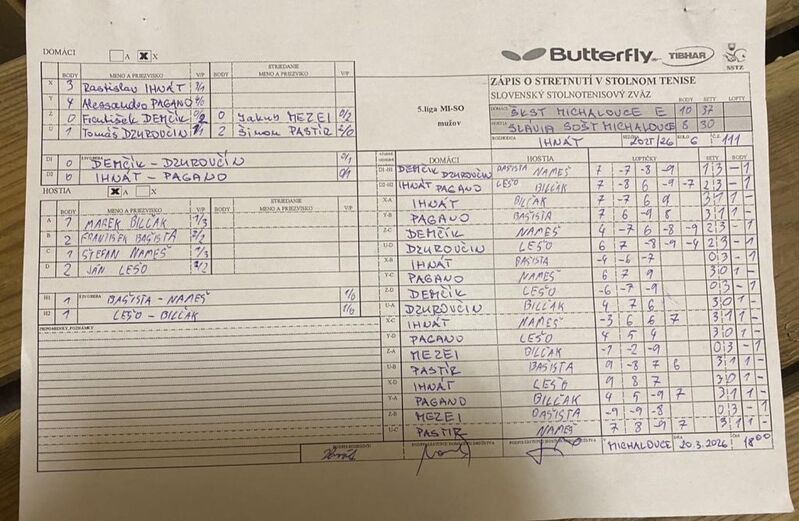 DOMÁCI A X X
Butterfly TIBHAR SSTZ
BODY MENO A PRIEZVISKO V/P BODY STRIEDANIE MENO A PRIEZVISKO V/P
X 3 Rastislav IHNÁT 3/1
Y 4 Alessandro PAGANO 4/0
Z 0 František DEMČÍK 0/2 0 Jakub MEZEI 0/2
U 1 Tomáš DZUROVČIN 1/1 2 Šimon PASTÍR 2/0
ZÁPIS O STRETNUTÍ V STOLNOM TENISE
SLOVENSKÝ STOLNOTENISOVÝ ZVÄZ
5.liga MI-SO
mužov
BODY SETY LOPTY
DOMÁCI ŠKST MICHALOVCE E 10 37
HOSTIA SLÁVIA SOŠT MICHALOVCE 8 30
ROZHODCA IHNÁT SEZÓNA 2025/26 KOLO 6 Č.Z. 111
D1 0 DEMČÍK - DZUROVČIN 0/1
D2 0 IHNÁT - PAGANO 0/1
HOSTIA X A X
BODY MENO A PRIEZVISKO V/P BODY STRIEDANIE MENO A PRIEZVISKO V/P
A 1 MAREK BILČÁK 1/3
B 2 FRANTIŠEK BAŠISTA 2/2
C 1 ŠTEFAN NAMEŠ 1/3
D 2 JÁN LEŠO 2/2
H1 1 BAŠISTA - NAMEŠ 1/0
H2 1 LEŠO - BILČÁK 1/0
PRIPOMIENKY, POZNÁMKY
DOMÁCI HOSTIA LOPTIČKY SETY BODY
D1-H1 DEMČÍK DZUROVČIN BAŠISTA NAMEŠ 7 -7 -8 -9 1 3 - 1
D2-H2 IHNÁT PAGANO LEŠO BILČÁK 7 -8 6 -9 -7 2 3 - 1
X-A IHNÁT BILČÁK 7 -7 6 9 3 1 1 -
Y-B PAGANO BAŠISTA 7 6 -9 8 3 1 1 -
Z-C DEMČÍK NAMEŠ 4 -7 6 -8 -9 2 3 - 1
U-D DZUROVČIN LEŠO 6 7 -8 -9 -4 2 3 - 1
X-B IHNÁT BAŠISTA -4 -6 -7 0 3 - 1
Y-C PAGANO NAMEŠ 6 7 9 3 0 1 -
Z-D DEMČÍK LEŠO -6 -7 -9 0 3 - 1
U-A DZUROVČIN BILČÁK 4 7 6 3 0 1 -
X-C IHNÁT NAMEŠ -3 6 6 7 3 1 1 -
Y-D PAGANO LEŠO 4 5 4 3 0 1 -
Z-A MEZEI BILČÁK -7 -2 -9 0 3 - 1
U-B PASTÍR BAŠISTA 9 -8 7 6 3 1 1 -
X-D IHNÁT LEŠO 9 8 7 3 0 1 -
Y-A PAGANO BILČÁK 4 5 -9 7 3 1 1 -
Z-B MEZEI BAŠISTA -9 -9 -8 0 3 - 1
U-C PASTÍR NAMEŠ 7 8 -9 7 3 1 1 -
MICHALOVCE DŇA 20.3.2026 ČAS 18 00